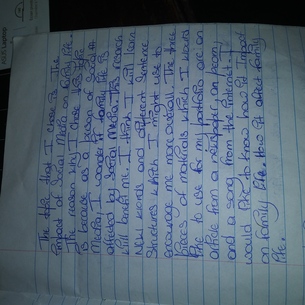 The title that I chose is The
Impact of Social Media on Family life.
The reason why I chose this topic
is because as a person of Social
Media I wonder if family life is
affected by Social Media. This research
will benefit me I think I will learn
New words and different Sentence
Structures which I might use to
encourage me more overall. The three
pieces of materials which I would
like to use for my portfolio are an
article from a newspaper, an poem,
and a song from the internet. I
would like to know how it Impact
on family life How it affect family
life.